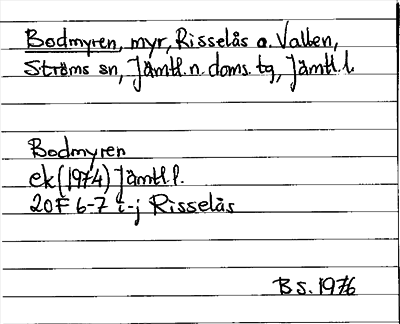 Bodmyren, myr, Risselås o. Valben,
Ströms sn, Jämtl. n. doms. tg, Jämtl. l.
Bodmyren
ek (1974) Jämtl. l.
20F 6-7 i-j Risselås
BS. 1976